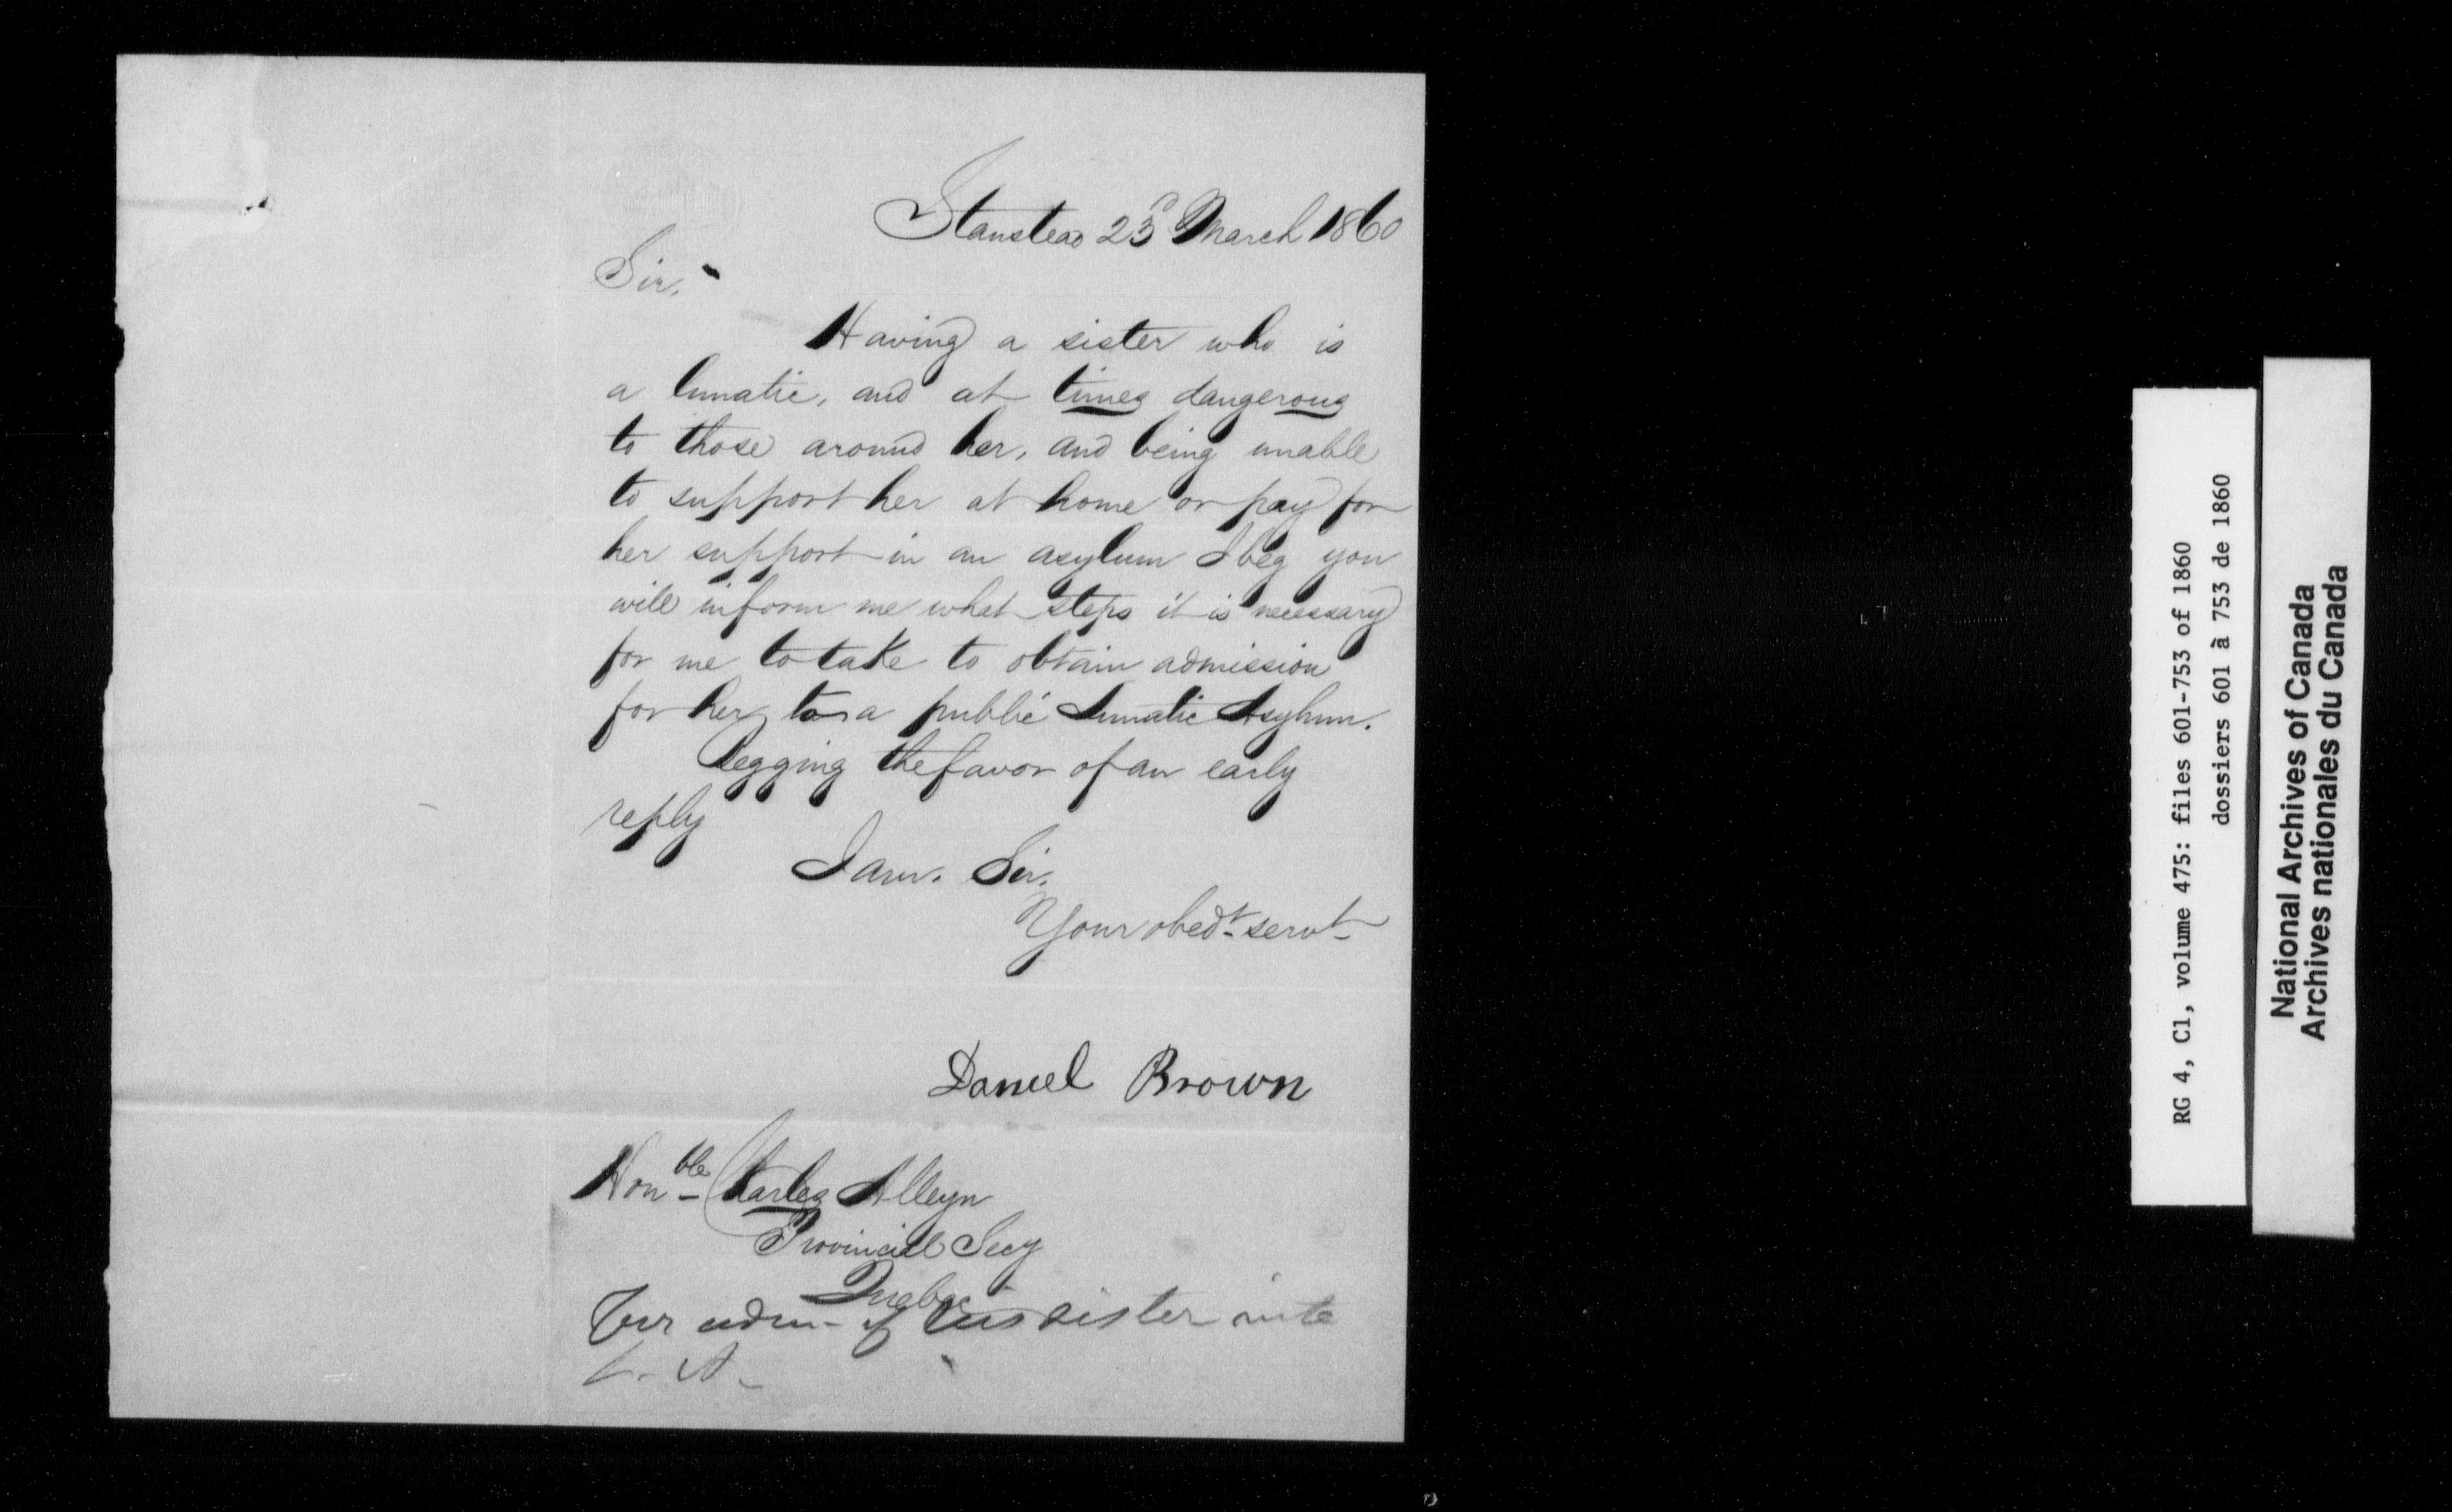 Stanstead 23d March 1860
Sir,
Having a sister who is
a lunatic, and at times dangerous
to those around her, and being unable
to support her at home or pay for
her support in an asylum I beg you
will inform me what steps it is necessary
for me to take to obtain admission
for her to a public Lunatic Asylum.
Begging the favor of an early
reply
I am. Sir.
Your obedt servt
Daniel Brown
Honble Charles Alleyn
Provincial Secy
Quebec
For adm- of his sister into
L. A.
RG 4, C1, volume 475: files 601-753 of 1860
dossiers 601 à 753 de 1860
National Archives of Canada
Archives nationales du Canada